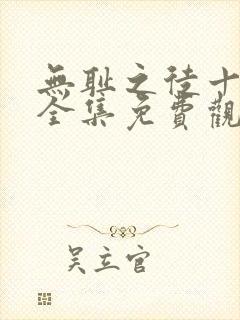 無恥之徒十
全集免費觀
吳立官